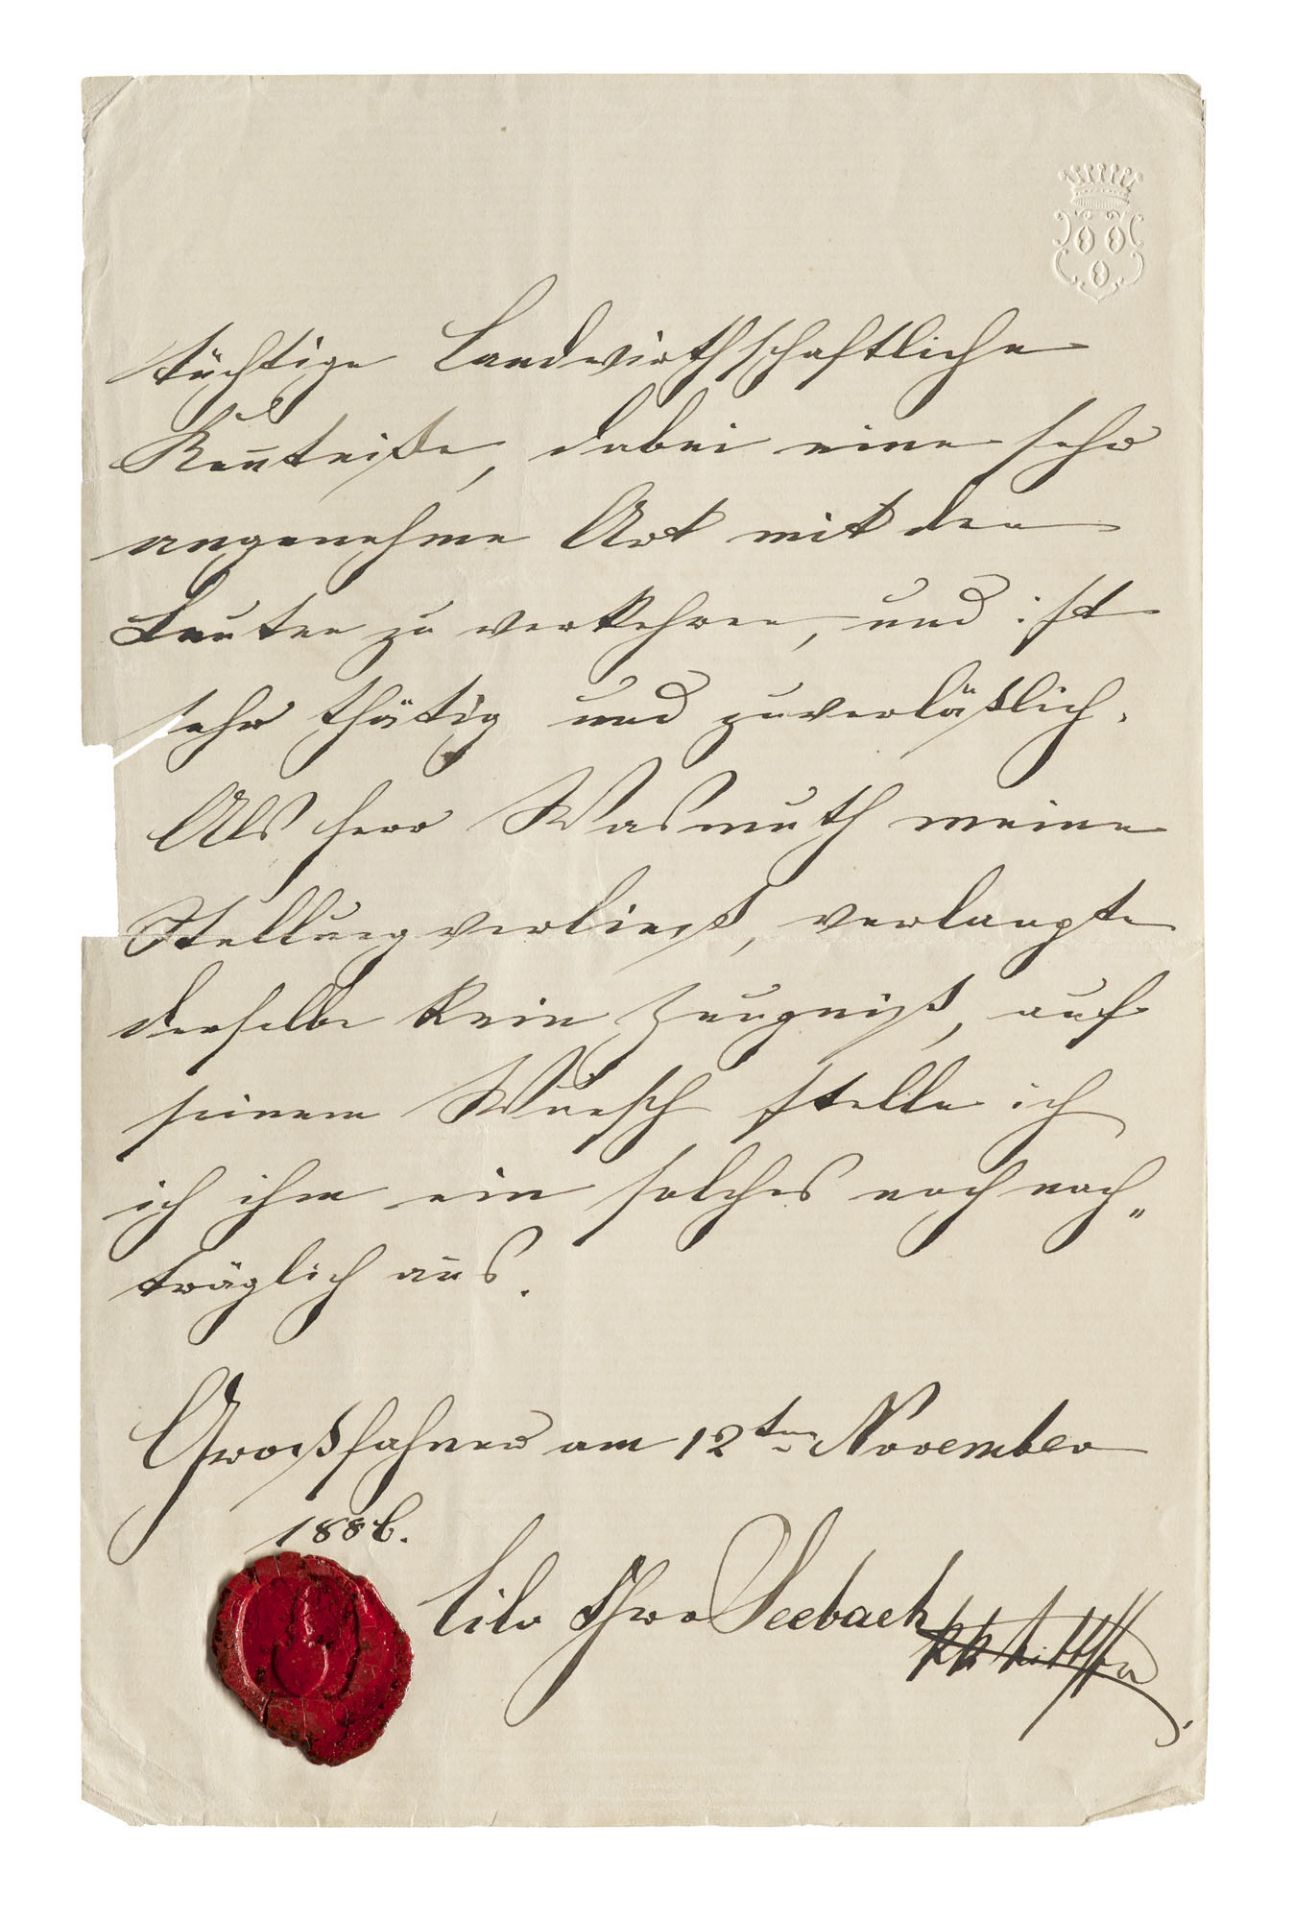 tüchtige Landwirthschaftliche
Ken̄tniße, dabei eine sehr
angenehme Art mit den
Leuten zu verkehren, und ist
sehr thätig und zuverläßlich.
Als Herr Wasmuth meine
Stellung verließ, verlangte
derselbe kein Zeugniß, auf
seinem Wunsch stelle ich
ich ihm ein solches noch nach„
träglich aus.
Großfahner am 12ten November
1886.
Thilo Frhr v Seebach